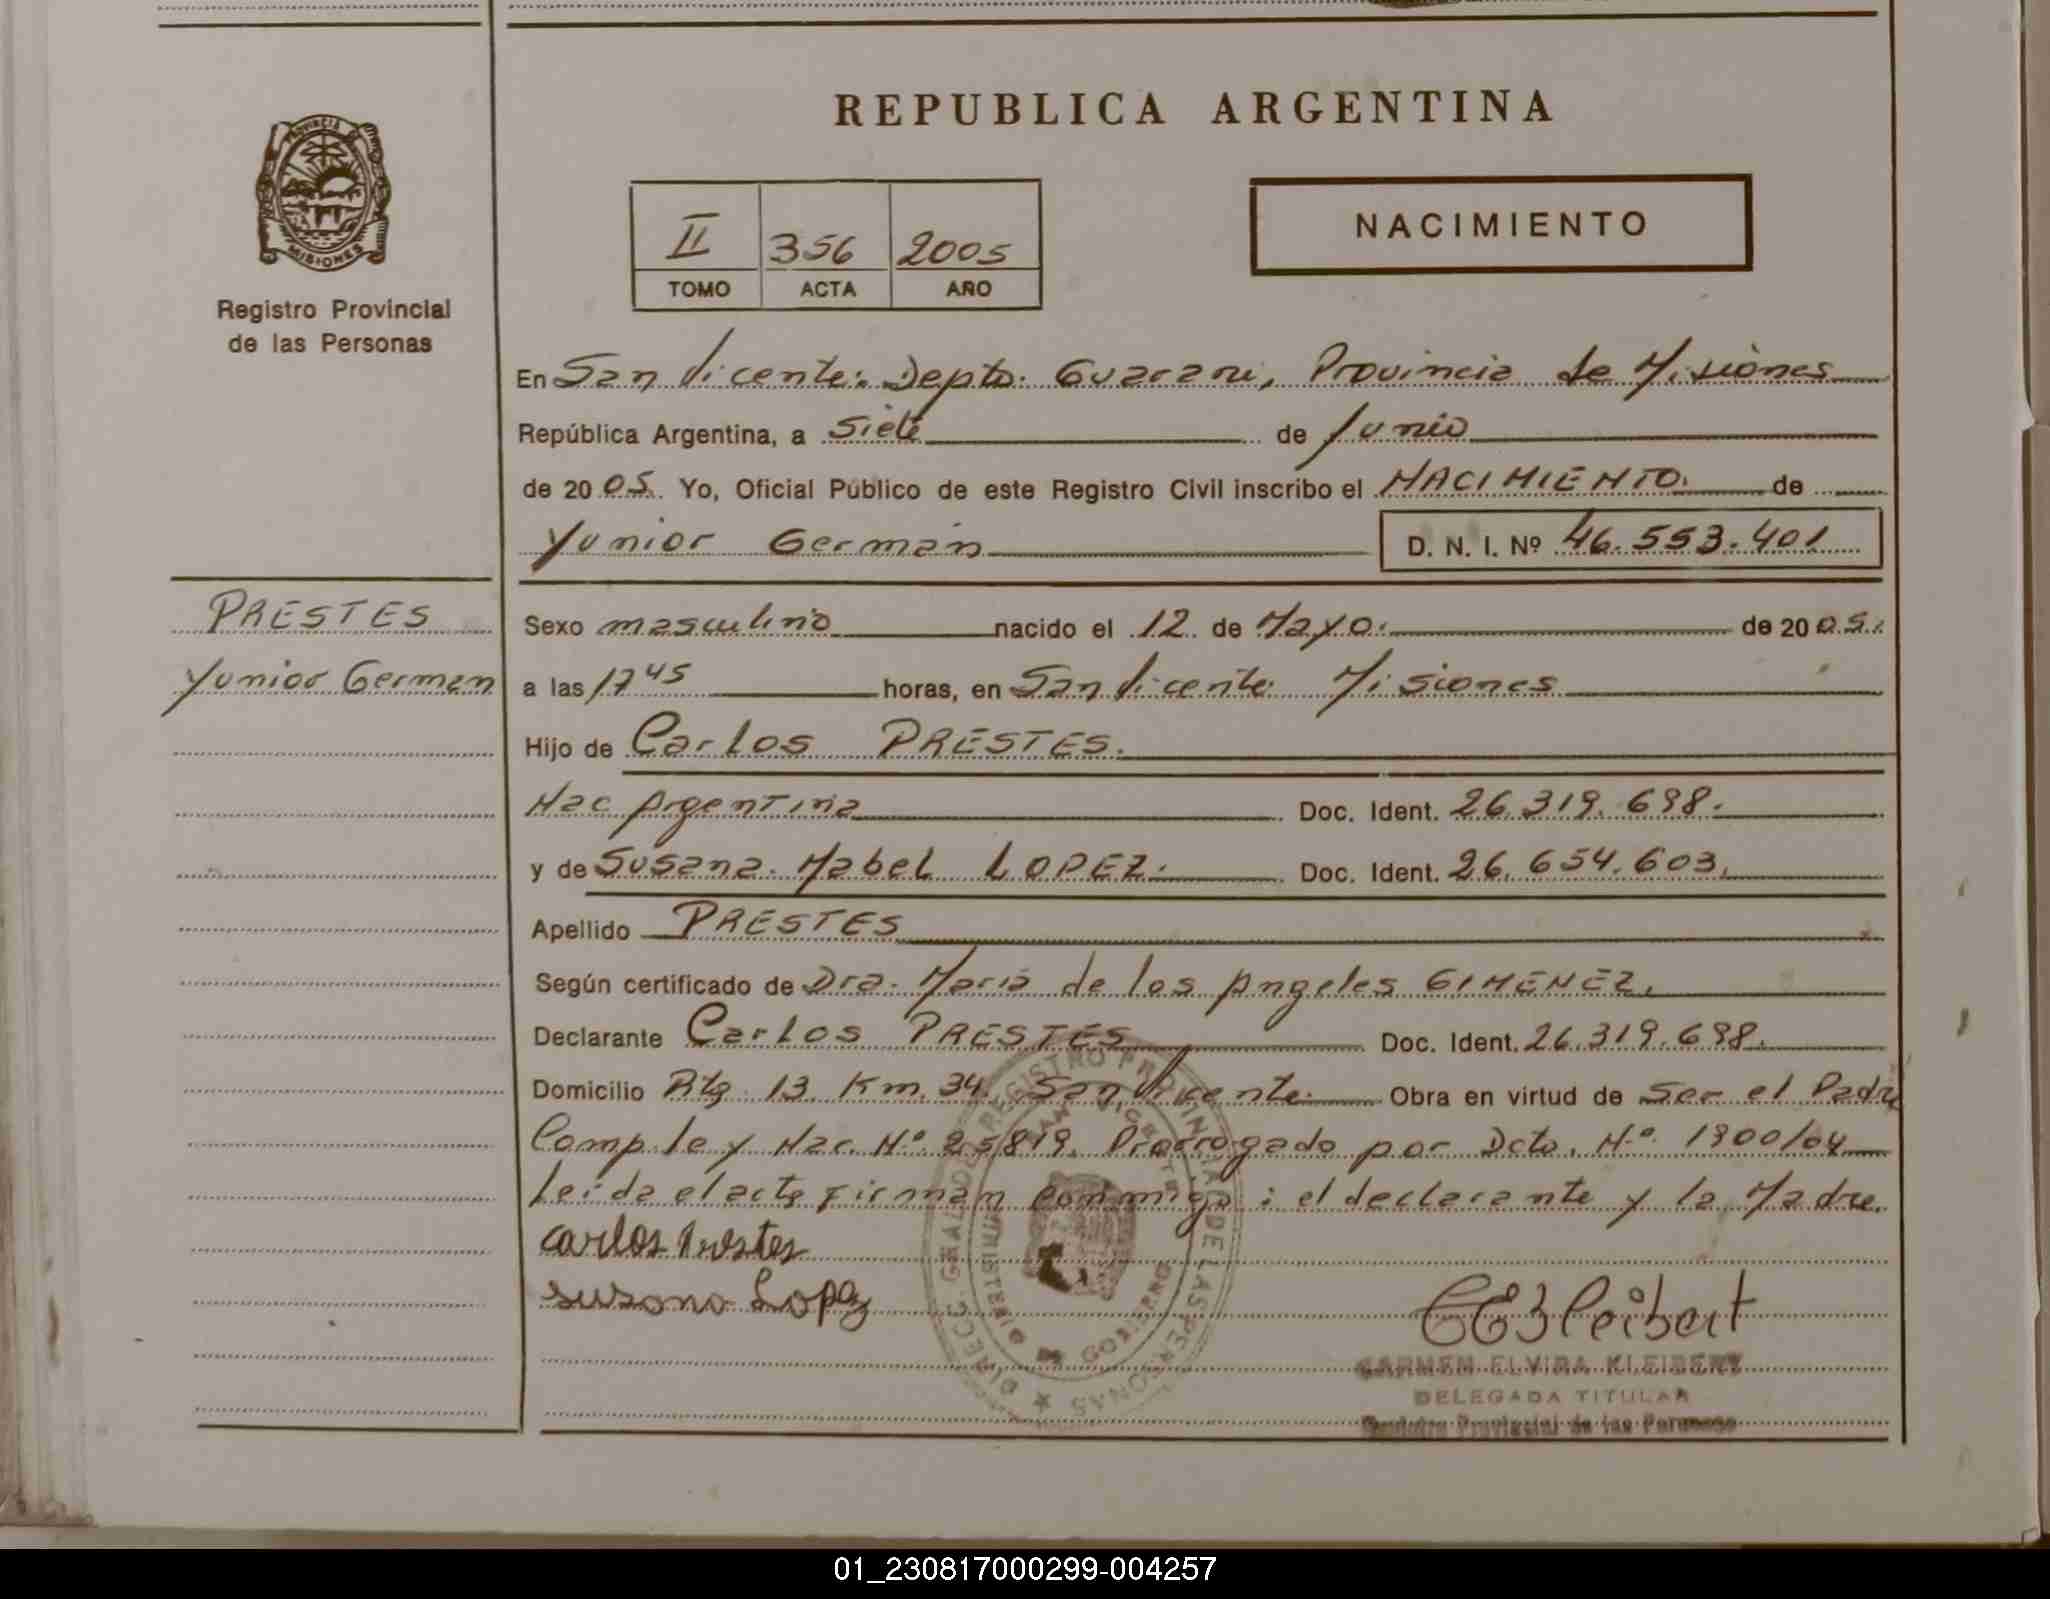 REPUBLICA ARGENTINA
PROVINCIA DE
MISIONES
Registro Provincial
de las Personas
II 356 2005
TOMO ACTA AÑO
NACIMIENTO
En San Vicente: Depto. Guarani, Provincia de Misiones
República Argentina, a siete de Junio
de 20 05. Yo, Oficial Público de este Registro Civil inscribo el NACIMIENTO. de
Yunior German D. N. I. Nº 46.553.401
PRESTES
Yunior German
Sexo masculino nacido el 12 de Mayo. de 20 05.
a las 17 45 horas, en San Vicente Misiones
Hijo de Carlos PRESTES.
Nac Argentina Doc. Ident. 26.319.698.
y de Susana Mabel LOPEZ. Doc. Ident. 26.654.603.
Apellido PRESTES
Según certificado de Dra. Maria de los Angeles GIMENEZ.
Declarante Carlos PRESTES Doc. Ident. 26.319.698.
Domicilio Rta 13 Km. 34. San Vicente Obra en virtud de Ser el Padre
Comp. ley Nac. Nº 25819. Prorrogado por Dcto. Nº 1900/04
Leida el acta firman conmigo: el declarante y la Madre.
Carlos Prestes
Susana Lopez
DIRECC. GRAL. DEL REGISTRO PROVINCIAL DE LAS PERSONAS
SAN VICENTE
MINISTERIO DE GOBIERNO
CARMEN ELVIRA KLEIBERT
DELEGADA TITULAR
Registro Provincial de las Personas
01_230817000299-004257